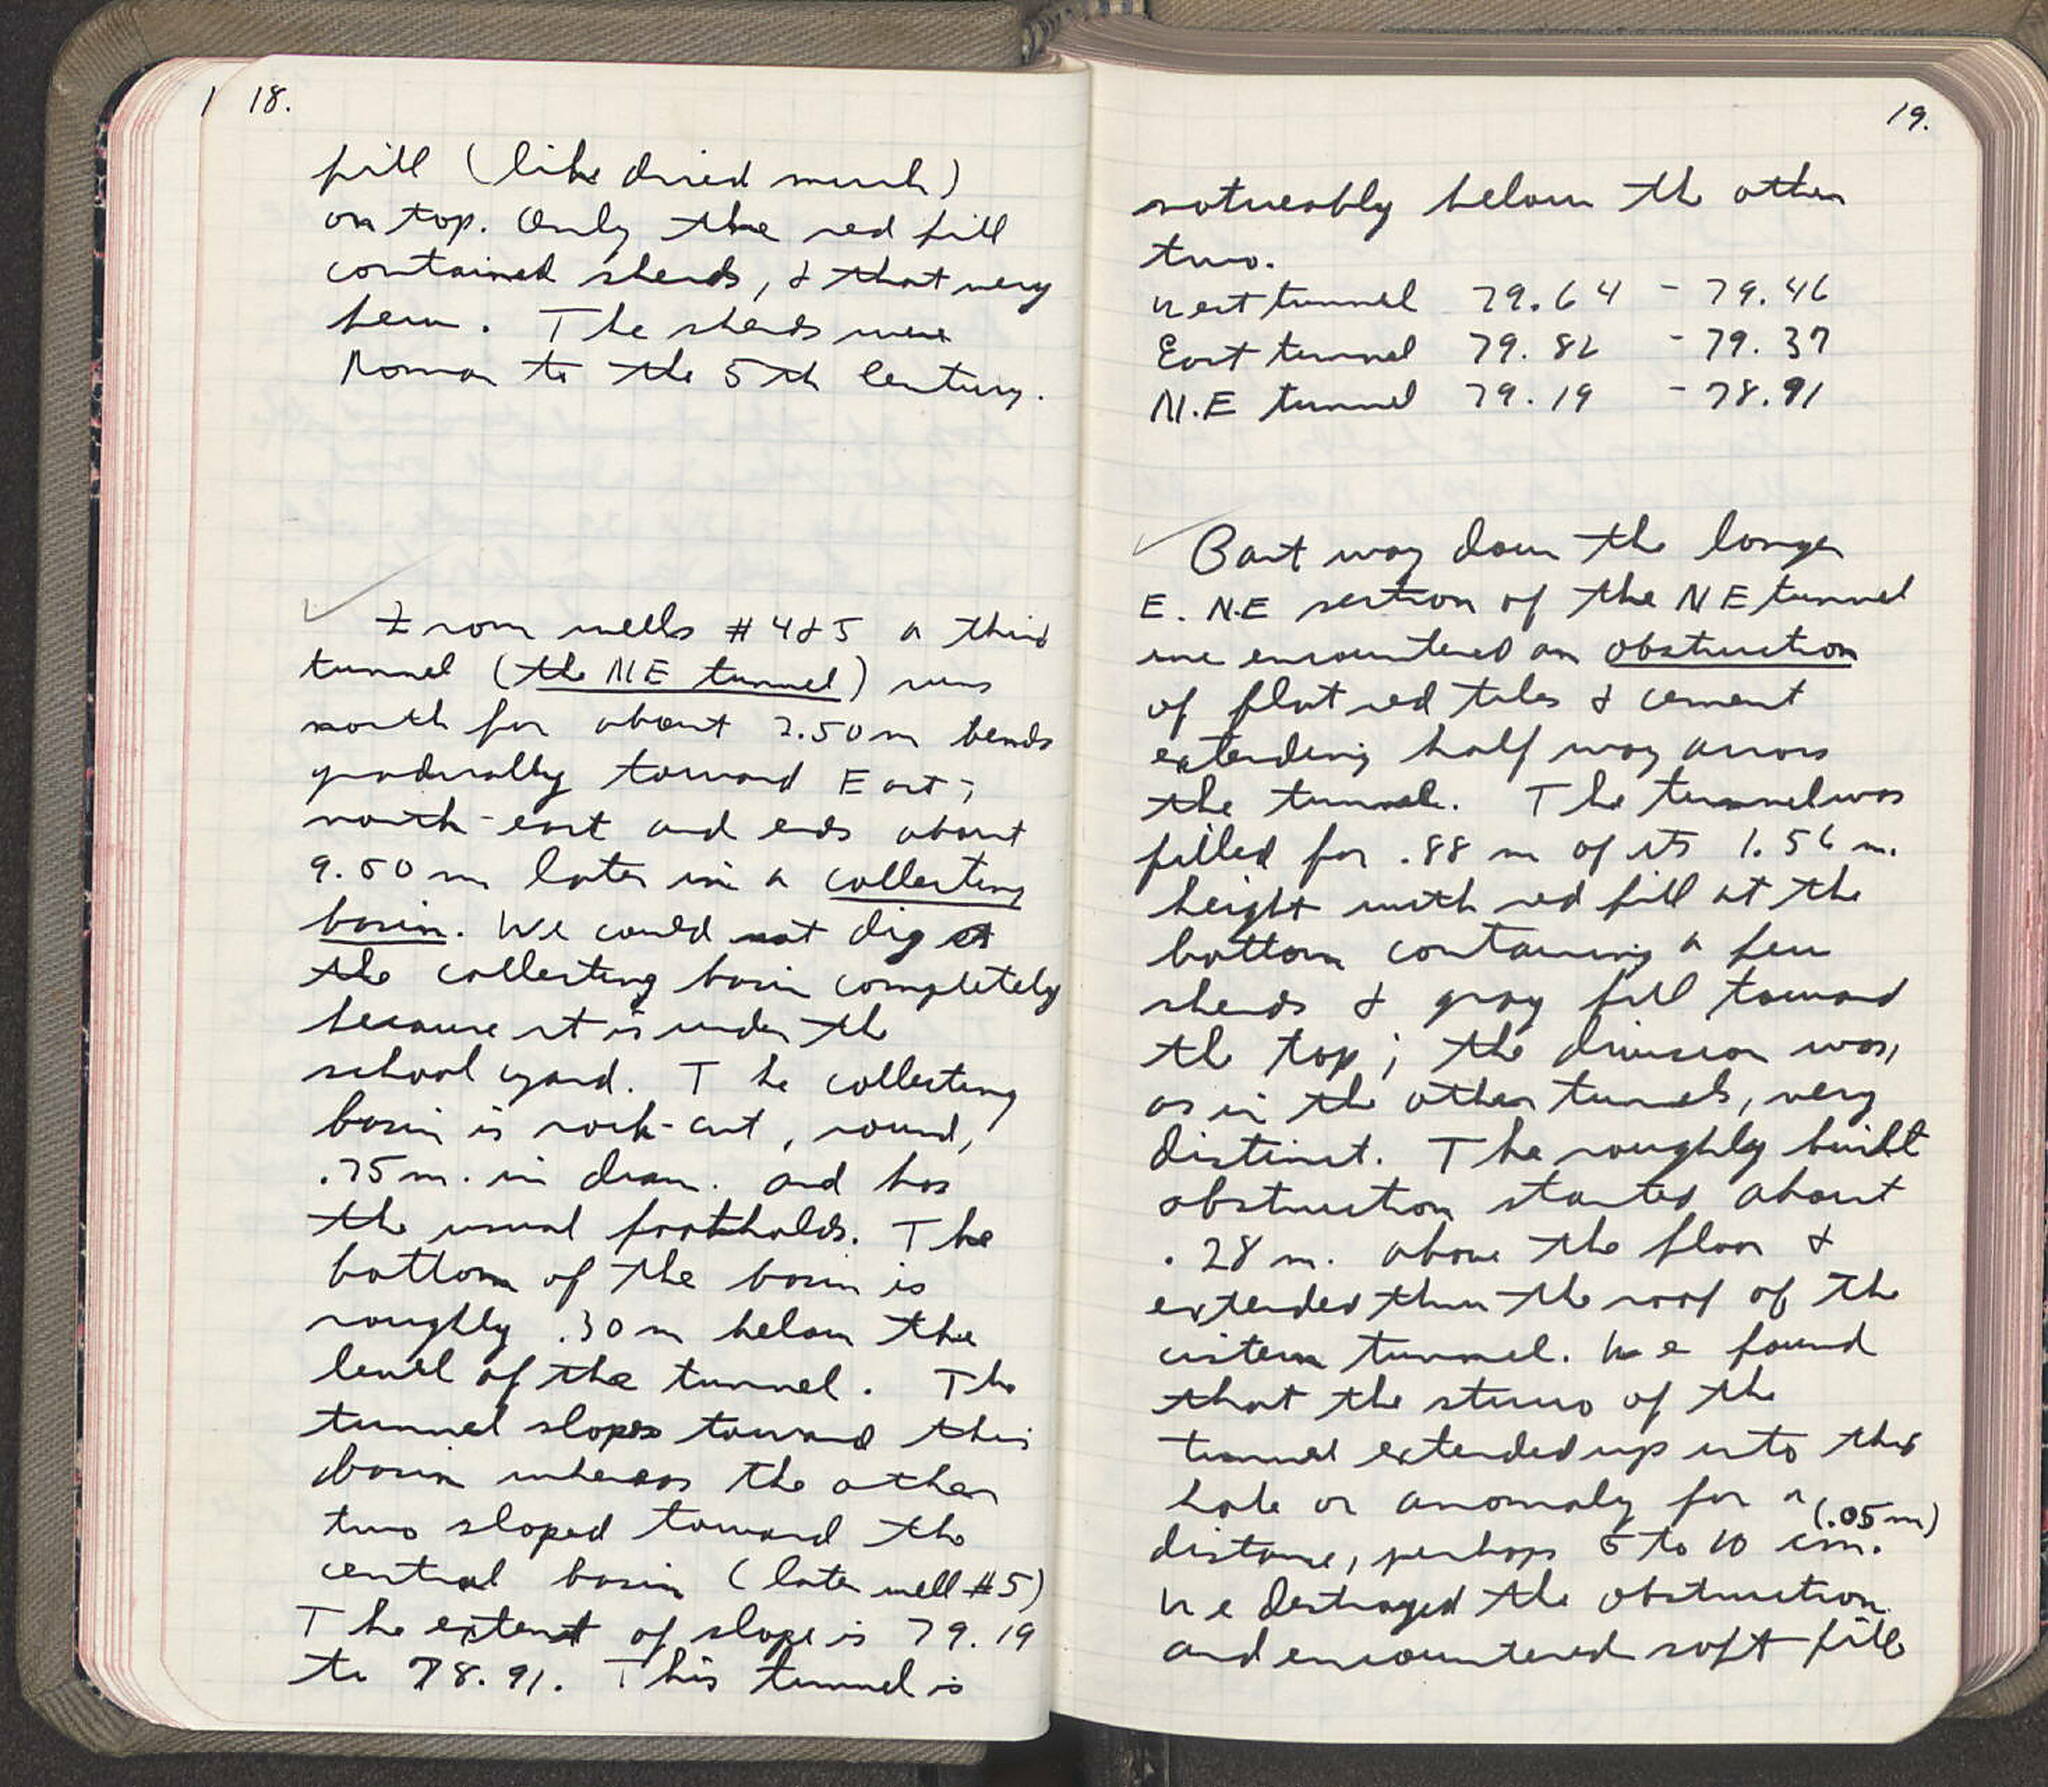 18.
fill (like dried mush)
on top. Only the red fill
contained sherds, & that very
few. The sherds were
Roman to the 5th Century.
From wells #4&5 a third
tunnel (the NE tunnel) runs
north for about 2.50m bends
gradually toward East;
north-east and ends about
9.50 m later in a collecting
basin. We could not dig
the collecting basin completely
because it is under the
school yard. The collecting
basin is rock-cut, round,
.75m. in diam. and has
the usual footholds. The
bottom of the basin is
roughly .30 m below the
level of the tunnel. The
tunnel slopes toward this
basin whereas the other
two sloped toward the
central basin (later well #5)
The extent of slope is 79.19
to 78.91. This tunnel is
19.
noticeably below the other
two.
West tunnel 79.64 - 79.46
East tunnel 79.82 - 79.37
N.E tunnel 79.19 - 78.91
Part way down the longer
E. N.E section of the NE tunnel
we encountered an obstruction
of flat red tiles & cement
extending half way across
the tunnel. The tunnel was
filled for .88 m of its 1.56 m.
height with red fill at the
bottom containing a few
sherds & gray fill toward
the top; the division was,
as in the other tunnels, very
distinct. The roughly built
obstruction started about
.28 m. above the floor &
extended thru the roof of the
cistern tunnel. We found
that the stucco of the
tunnel extended up into this
hole or anomaly for a
(.05m)
distance, perhaps 5 to 10 cm.
We destroyed the obstruction
and encountered soft fill